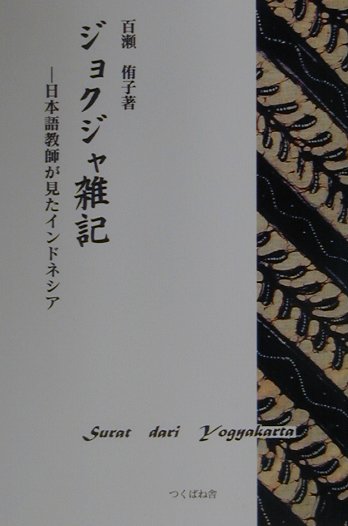 百瀬 侑子著
ジョクジャ雑記
―日本語教師が見たインドネシア
Surat dari Yogyakarta
つくばね舎